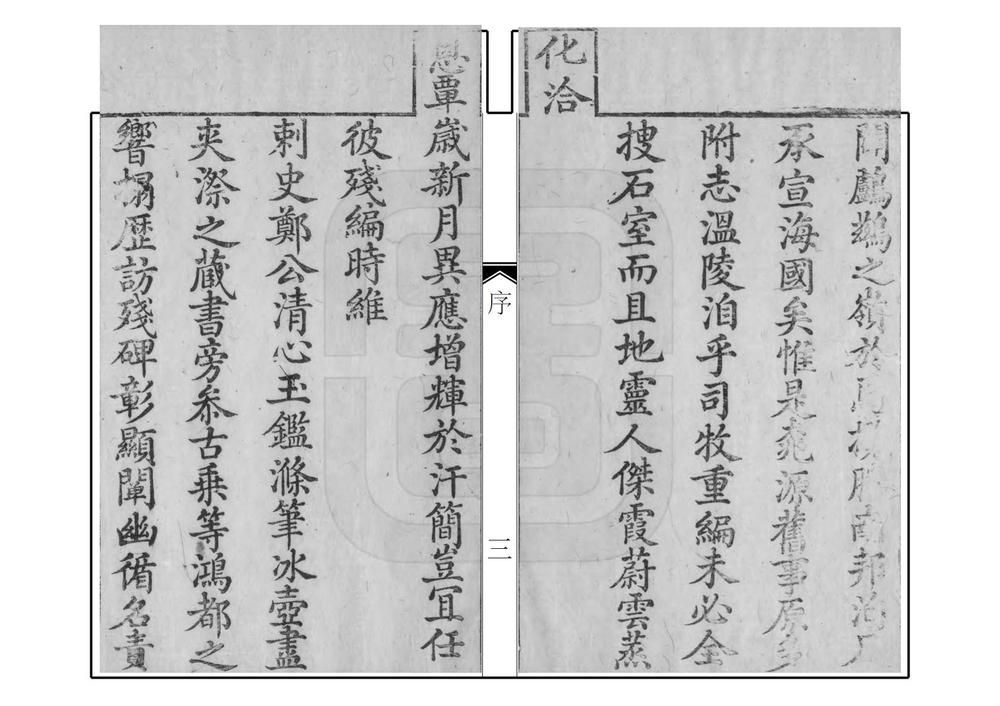 開鷓鴣之嶺於馬
南邦洵
承宣海國矣惟是桃源舊事原多
附志溫陵洎乎司牧重編未必全
搜石室而且地靈人傑霞蔚雲蒸
化洽
恩覃歲新月異應增輝於汗簡豈宜任
彼殘編時維
刺史鄭公清心玉鑑滌筆冰壺盡
夾漈之藏書旁叅古乗等鴻都之
響搨歷訪殘碑彰顯闡幽循名責
序
三